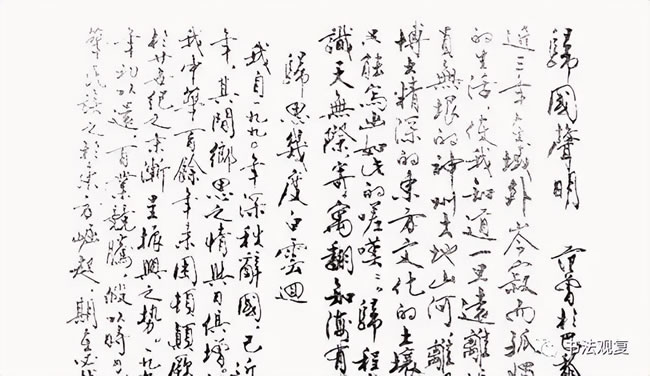 歸國聲明 范曾於巴黎
近三年在域外岑寂而孤
的生活,使我知道一旦遠離
垠的神州大地山河,離
博大精深的東方文化的土壤
只能寫出如此的嗟嘆:歸程
識天無際,寄寓翻知海有
歸思幾度白雲迴
我自一九九〇年深秋辭國,已近
年,其間鄉思之情與日俱增
我中華百餘年來困頓顛
於廿世紀之末漸呈振興之勢。一九
年初以還,百業競騰,
方崛起,期至
书法观复